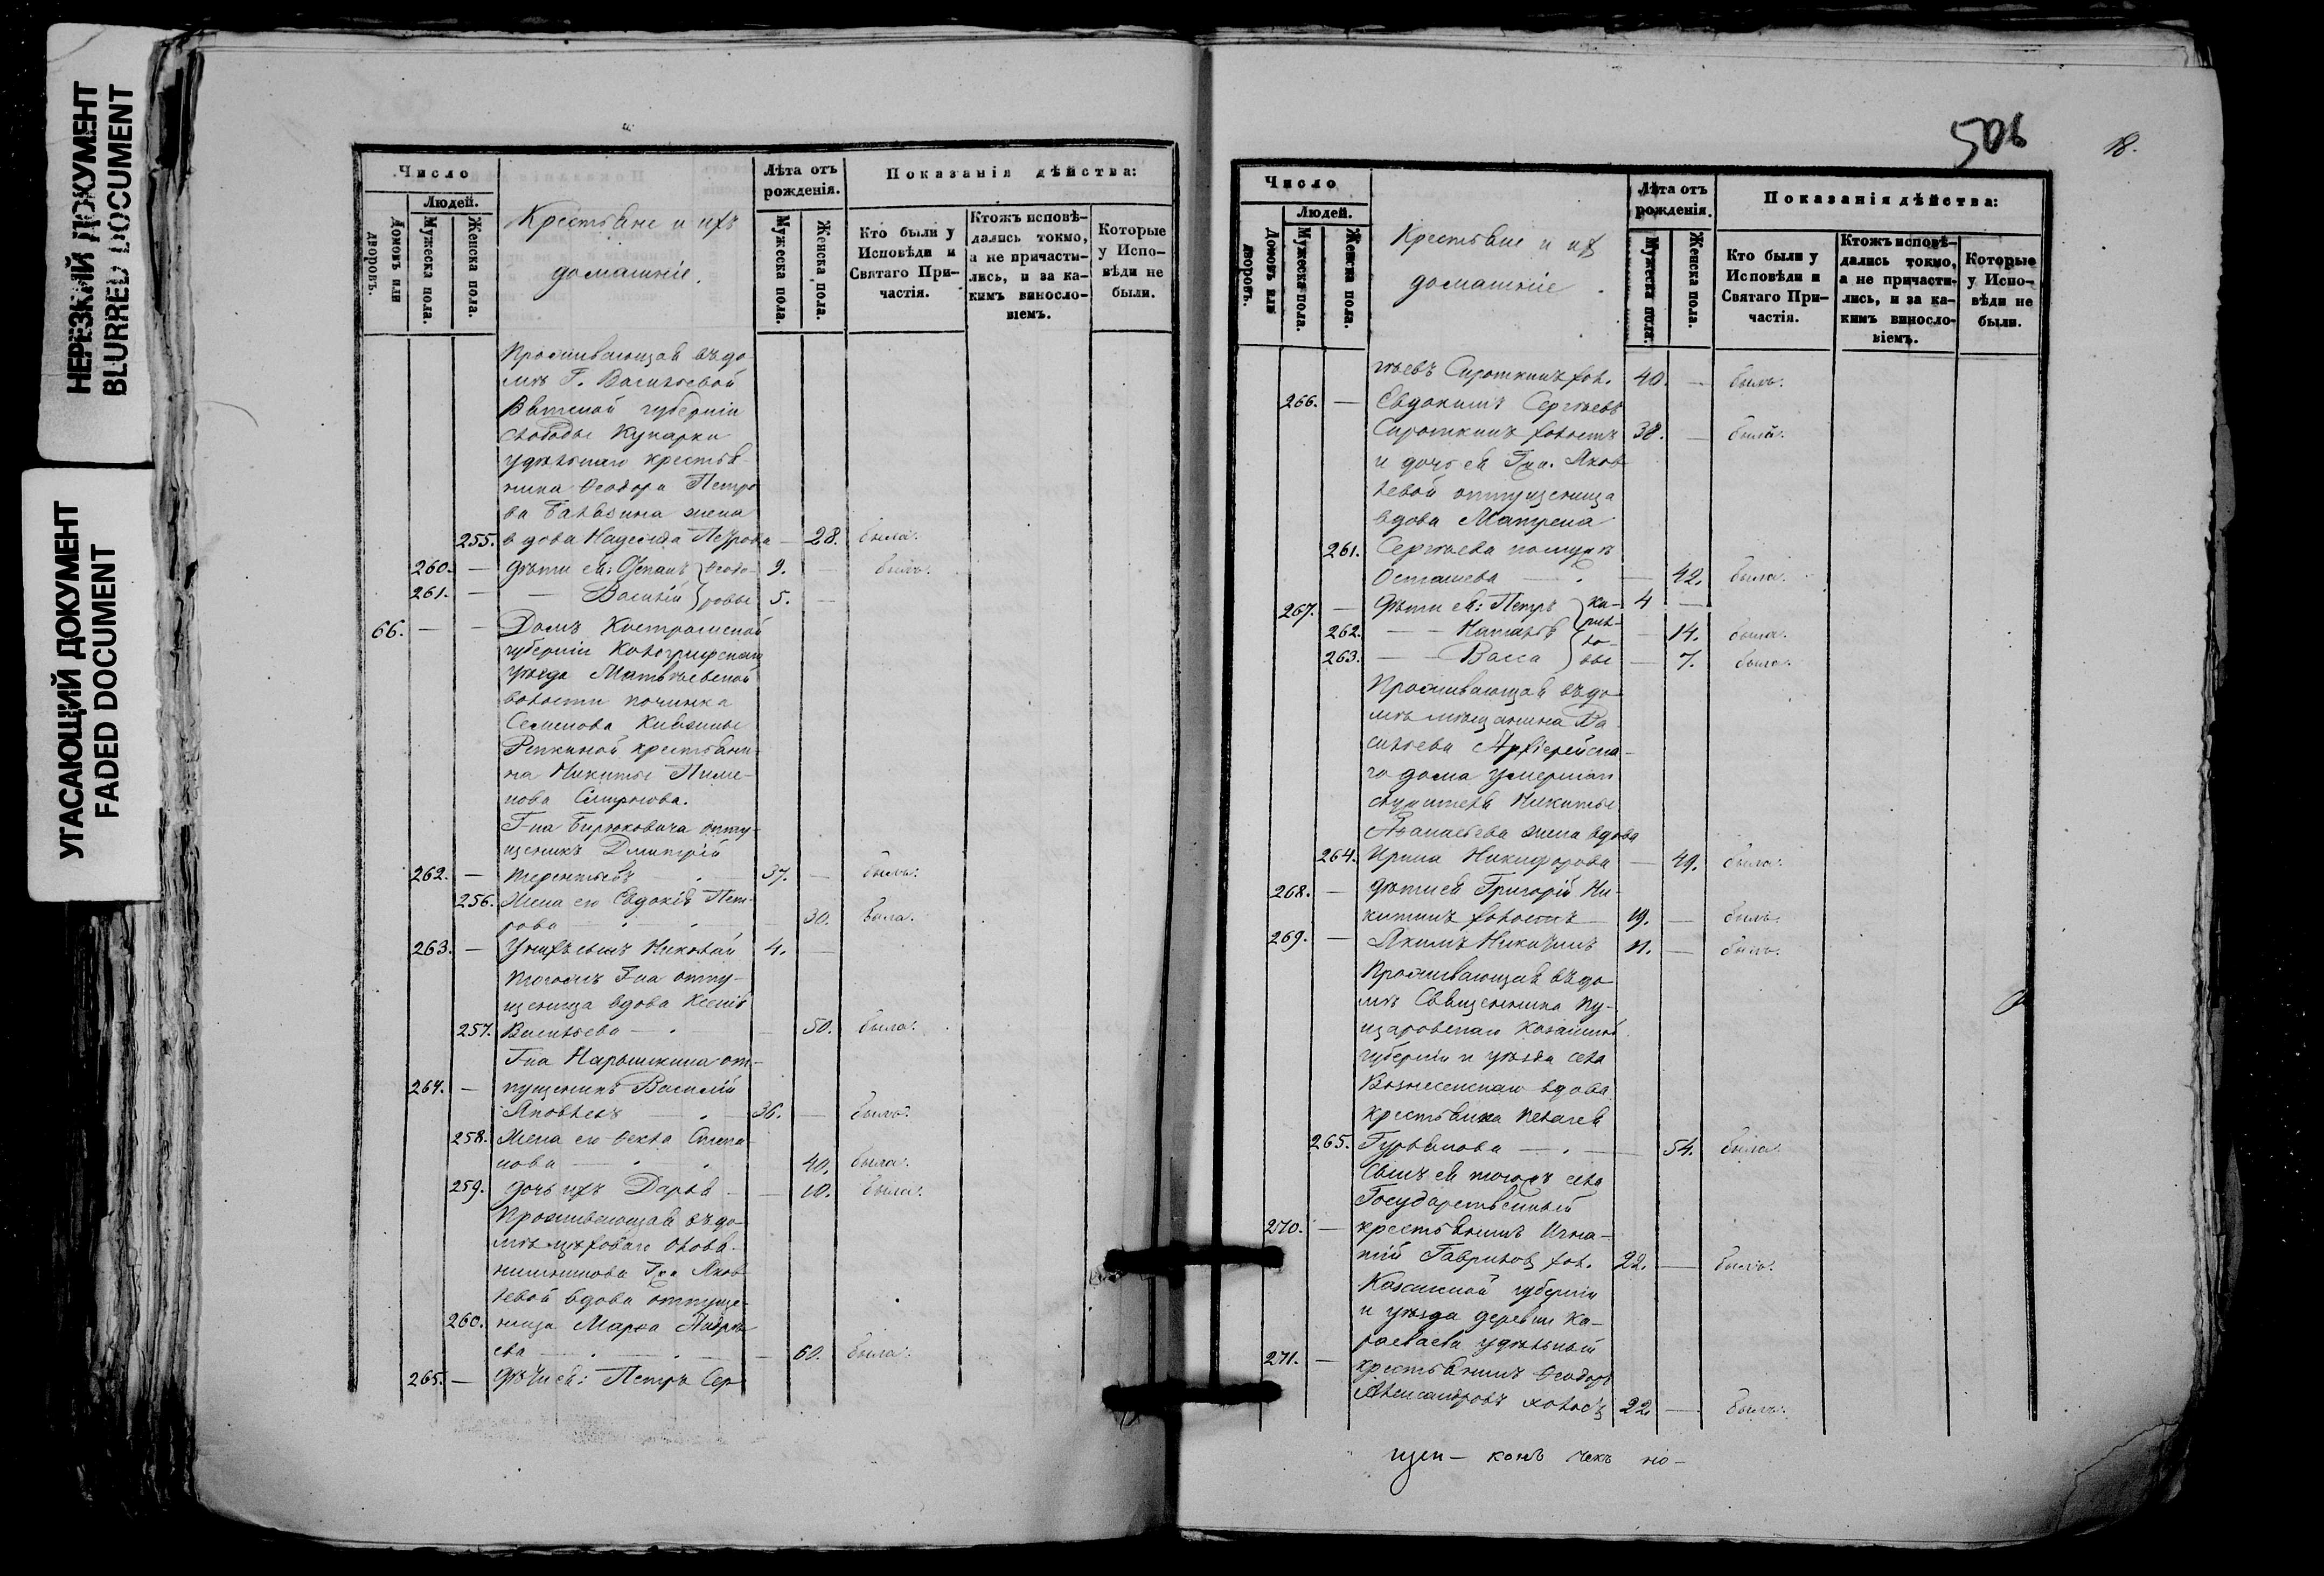 НЕРЕЗКИЙ ДОКУМЕНТ
BLURRED DOCUMENT
УГАСАЮЩИЙ ДОКУМЕНТ
FADED DOCUMENT
Число
Людей.
Домовъ или дворовъ.
Мужеска пола.
Женска пола.
Крестьяне и ихъ
домашніе.
Лѣта отъ рожденія.
Мужеска пола.
Женска пола.
Показанія дѣйства:
Кто были у Исповѣди и Святаго Причастія.
Ктожъ исповѣдались токмо, а не причастились, и за какимъ винословіемъ.
Которые у Исповѣди не были.
Проживающая въ до-
мѣ Г. Васильевой
Вятской губерніи
слободы Кукарки
удѣльнаго крестья-
нина Ѳеодора Петро
ва жена
255. вдова Надежда Петрова — 28. была.
260. — дѣти ея: Степанъ } Ѳеодо- 9. — былъ.
261. — — Василій } ровы 5. —
66. — — Домъ Костромской
губерніи Кологривскаго
уѣзда Матвѣевской
волости починка
Семенова Княжны
Репниной крестьяни-
на Никиты Пиме-
нова Смирнова.
Г-на Бирюковича отпу-
щеникъ Дмитрій
262. — Терентьевъ — 37. — былъ.
256. Жена его Евдокія Пет-
рова — 30. была.
263. — У нихъ сынъ Николай 4. —
тогожъ Г-на отпу-
щеница вдова Ксенія
257. Васильева — 50. была.
Г-на Нарышкина от-
264. — пущеникъ Василій
Яковлевъ — 36. — былъ.
258. Жена его Ѳекла Степа-
нова — 40. была.
259. дочь ихъ Дарья — 10. была.
Проживающая въ до-
мѣ цѣховаго
Г-жи Яков
левой вдова отпуще-
260. ница Марѳа Андре
ева — 60. была.
265. — Дѣти ея: Петръ Сер
506
18.
Число
Людей.
Домовъ или дворовъ.
Мужеска пола.
Женска пола.
Крестьяне и ихъ
домашніе.
Лѣта отъ рожденія.
Мужеска пола.
Женска пола.
Показанія дѣйства:
Кто были у Исповѣди и Святаго Причастія.
Ктожъ исповѣдались токмо, а не причастились, и за какимъ винословіемъ.
Которые у Исповѣди не были.
гѣевъ Сироткинъ хол. 40. — былъ.
266. — Евдокимъ Сергѣевъ
Сироткинъ холостъ 38. — былъ.
и дочь ея Г-жи Яков
левой отпущеница
вдова Матрена
261. Сергѣева по мужѣ
Осташева — 42. была.
267. — Дѣти ея: Петръ } Ки- 4 —
262. — — Наталья } рил- — 14. была.
263. — — Васса } ло- вы — 7. была.
Проживающая въ до-
мѣ мѣщанина Ва
сильева Архіерейска-
го дома умершаго
служителя Никиты
Аѳанасьева жена вдова
264. Ирина Никифорова — 49. была.
268. — дѣти ея Григорій Ни-
китинъ холостъ 19. — былъ.
269. — Якимъ Никитинъ 11. — былъ.
Проживающая въ до-
мѣ Священника Пу-
царовскаго Казанской
губерніи и уѣзда села
Вознесенскаго вдова
крестьянка Пелагея
265. Гурьянова — 54. была.
Сынъ ея тогожъ села
Государственный
270. — крестьянинъ Игна-
тій Гавриловъ хол. 22. — былъ.
Казанской губерніи
и уѣзда деревни Ка-
раваева удѣльный
271. — крестьянинъ Ѳеодоръ
Александровъ холостъ 22. — былъ.